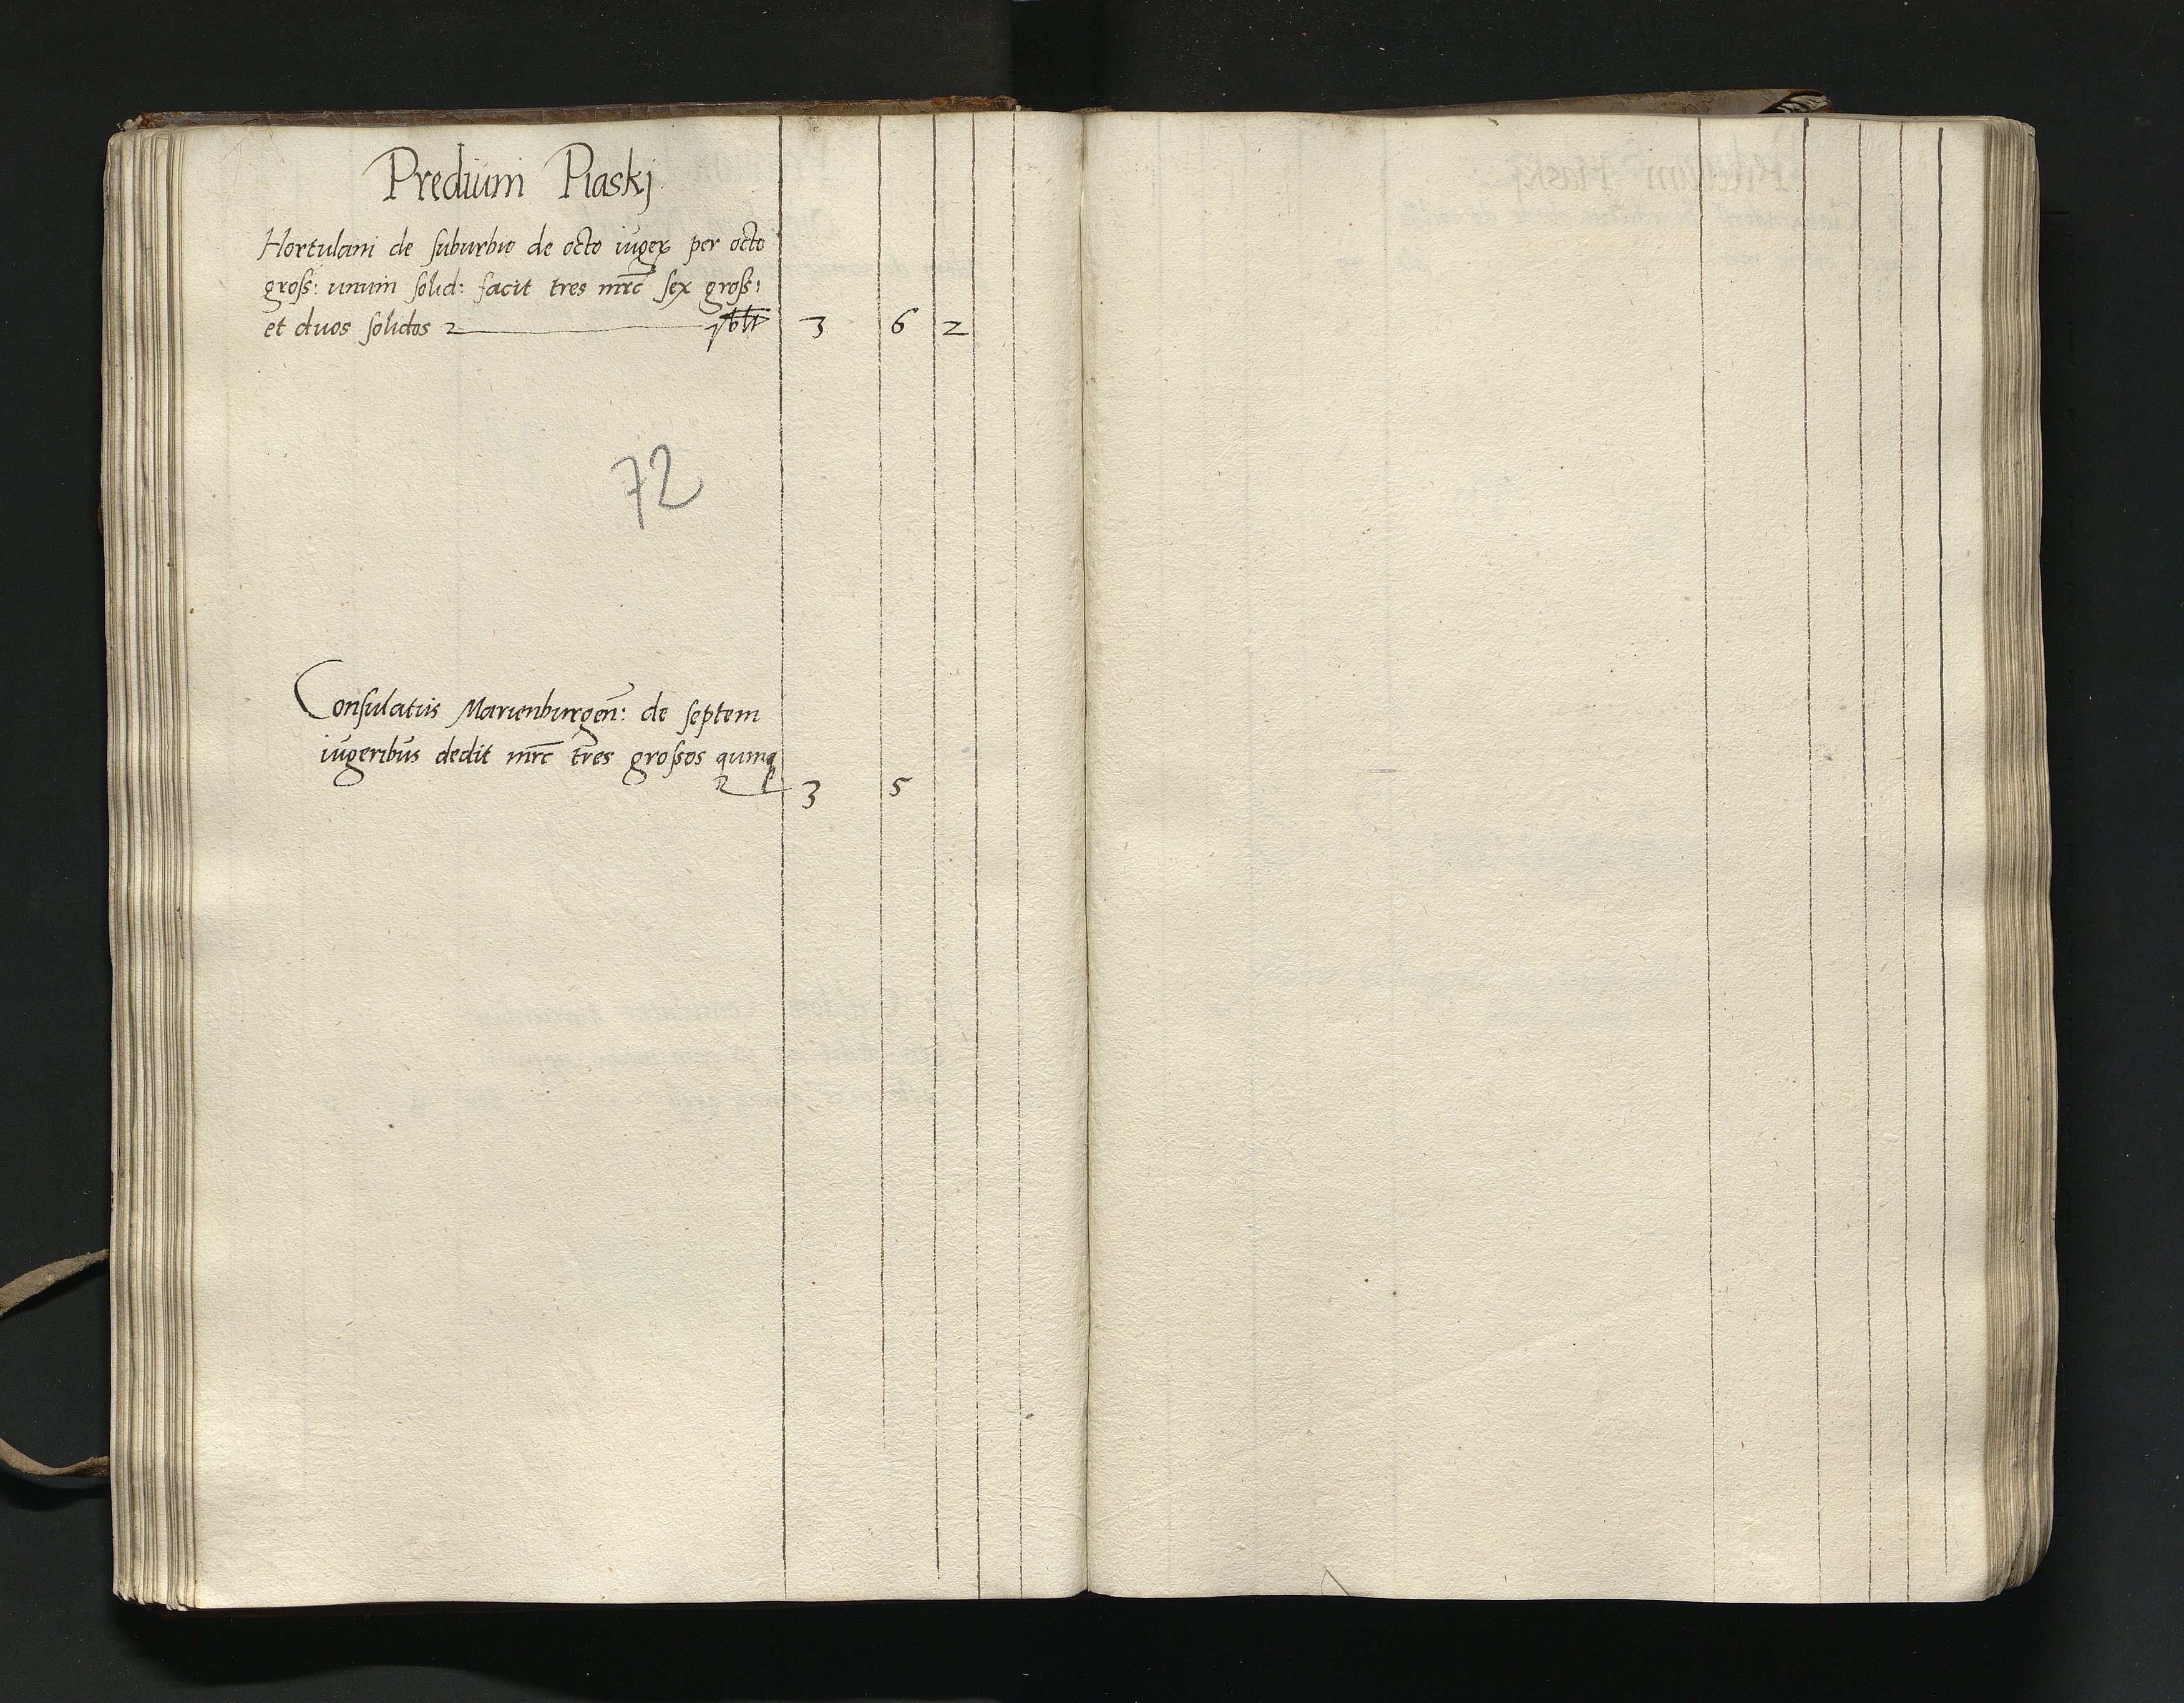 Predium Piaskj
Hortulani de suburbio de octo iuger per octo
gross: unum solid: facit tres mrc sex gross:
et duos solidos 3 6 2
72
Consulatus Marienburgen: de septem
iugeribus dedit mrc tres grossos quinq
3 5